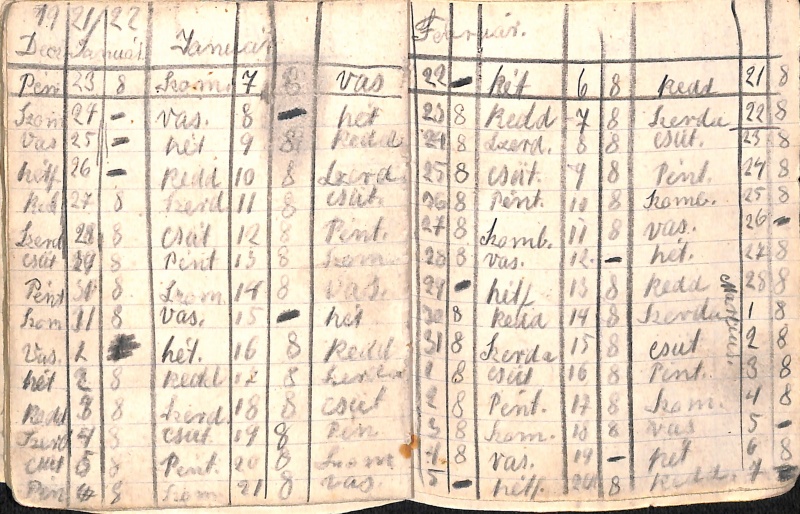 19 21/22
Dec Január Január Február.
Pén 23 8 Szom. 7 8 vas 22 - hét 6 8 kedd 21 8
Szom 24 - vas. 8 - hét 23 8 kedd 7 8 Szerda 22 8
Vas 25 - hét 9 8 kedd 24 8 Szerd. 8 8 csüt. 23 8
hétf 26 - kedd 10 8 Szerd 25 8 csüt. 9 8 Pént. 24 8
ked 27 8 Szerd 11 8 csüt. 26 8 Pént 10 8 Szomb. 25 8
Szerd 28 8 csüt 12 8 Pént. 27 8 Szomb. 11 8 vas. 26 -
csüt 8 Pént 13 8 Szom 28 8 vas. 12 - hét. 27 8
Pént 31 8 Szom 14 8 vas. 29 - hétf 13 8 kedd 28 8
Szom 8 vas. 15 - hét 30 8 kedd 14 8 Szerda Március. 1 8
Vas. hét. 16 8 kedd 31 8 Szerda 15 8 csüt 2 8
hét 2 8 kedd 8 Szerda 1 8 csüt 16 8 Pént. 3 8
kedd 3 8 Szerd. 18 8 csüt 2 8 Pént. 17 8 Szom. 4 8
Szerd 4 8 csüt. 19 8 Pén 3 8 Szom. 18 8 vas 5 -
csüt 5 8 Pént. 20 8 Szom 4 8 vas. 19 - hét 6 8
Pén 8 Szom. 21 8 vas. 5 - hétf. 20 8 kedd. 7